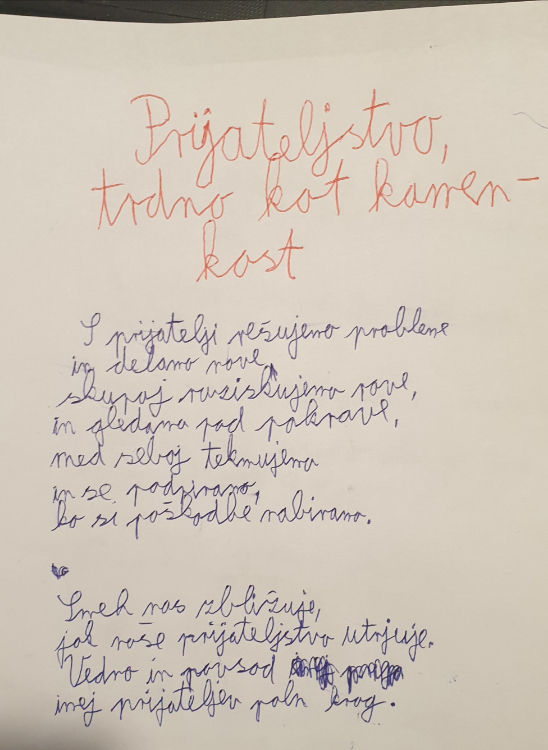 Prijateljstvo,
trdno kot kamen-
kost
S prijatelji rešujemo probleme
in delamo nove,
skupaj raziskujemo rove,
in gledamo pod pokrove,
med seboj tekmujemo
in se podpiramo,
ko si poškodbe nabiramo.
Smeh nas zbližuje,
jok naše prijateljstvo utrjuje.
Vedno in povsod
imej prijateljev poln krog.